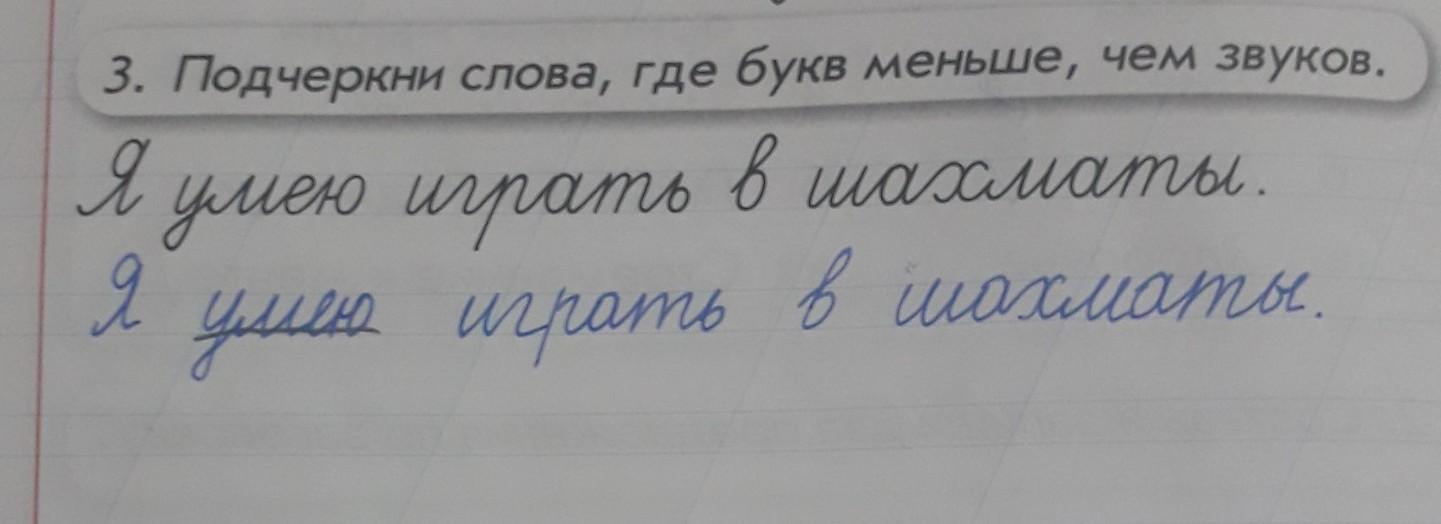 3. Подчеркни слова, где букв меньше, чем звуков.
Я умею играть в шахматы.
Я умею играть в шахматы.